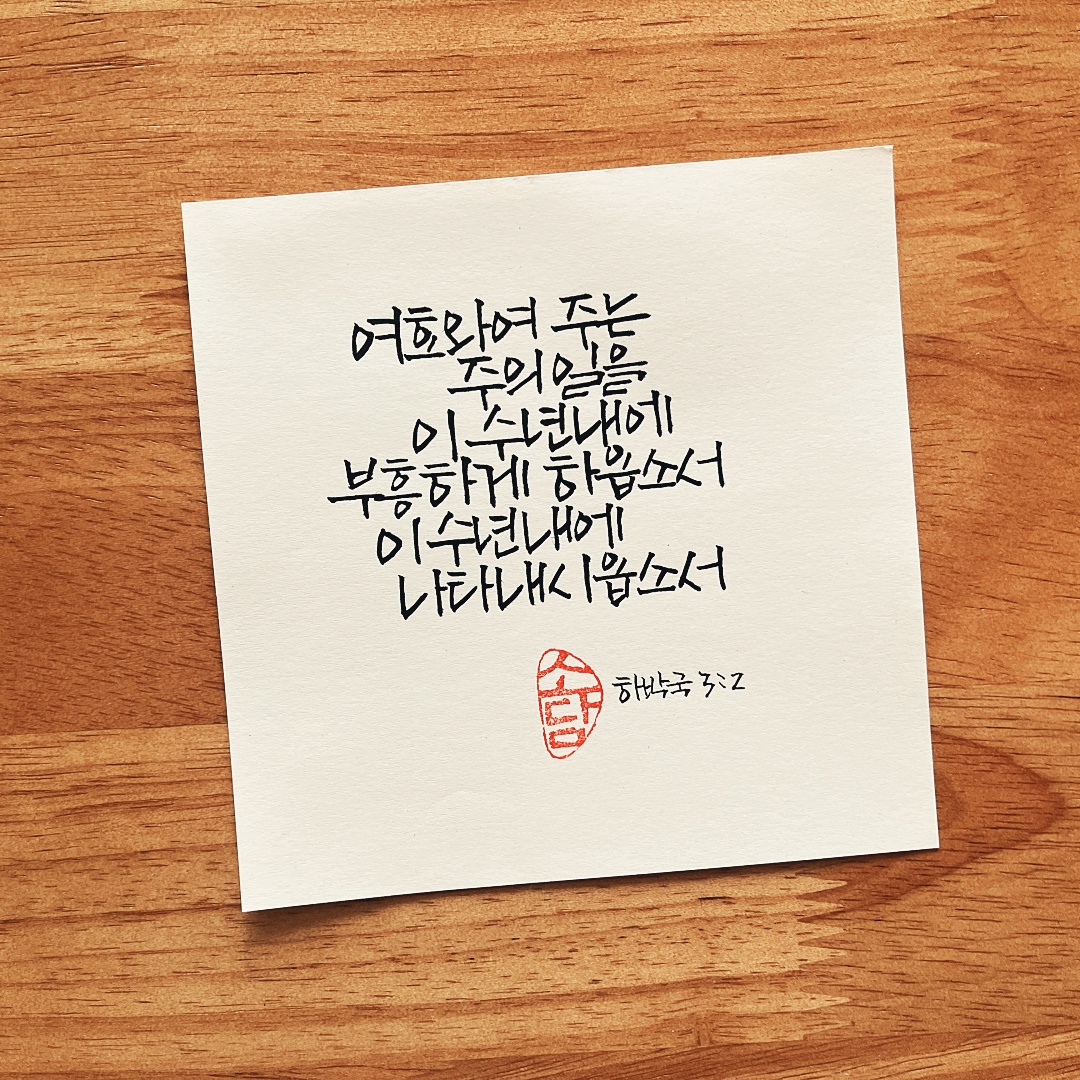 여호와여 주는
주의 일을
이 수년내에
부흥하게 하옵소서
이 수년내에
나타내시옵소서
소담
하박국 3:2